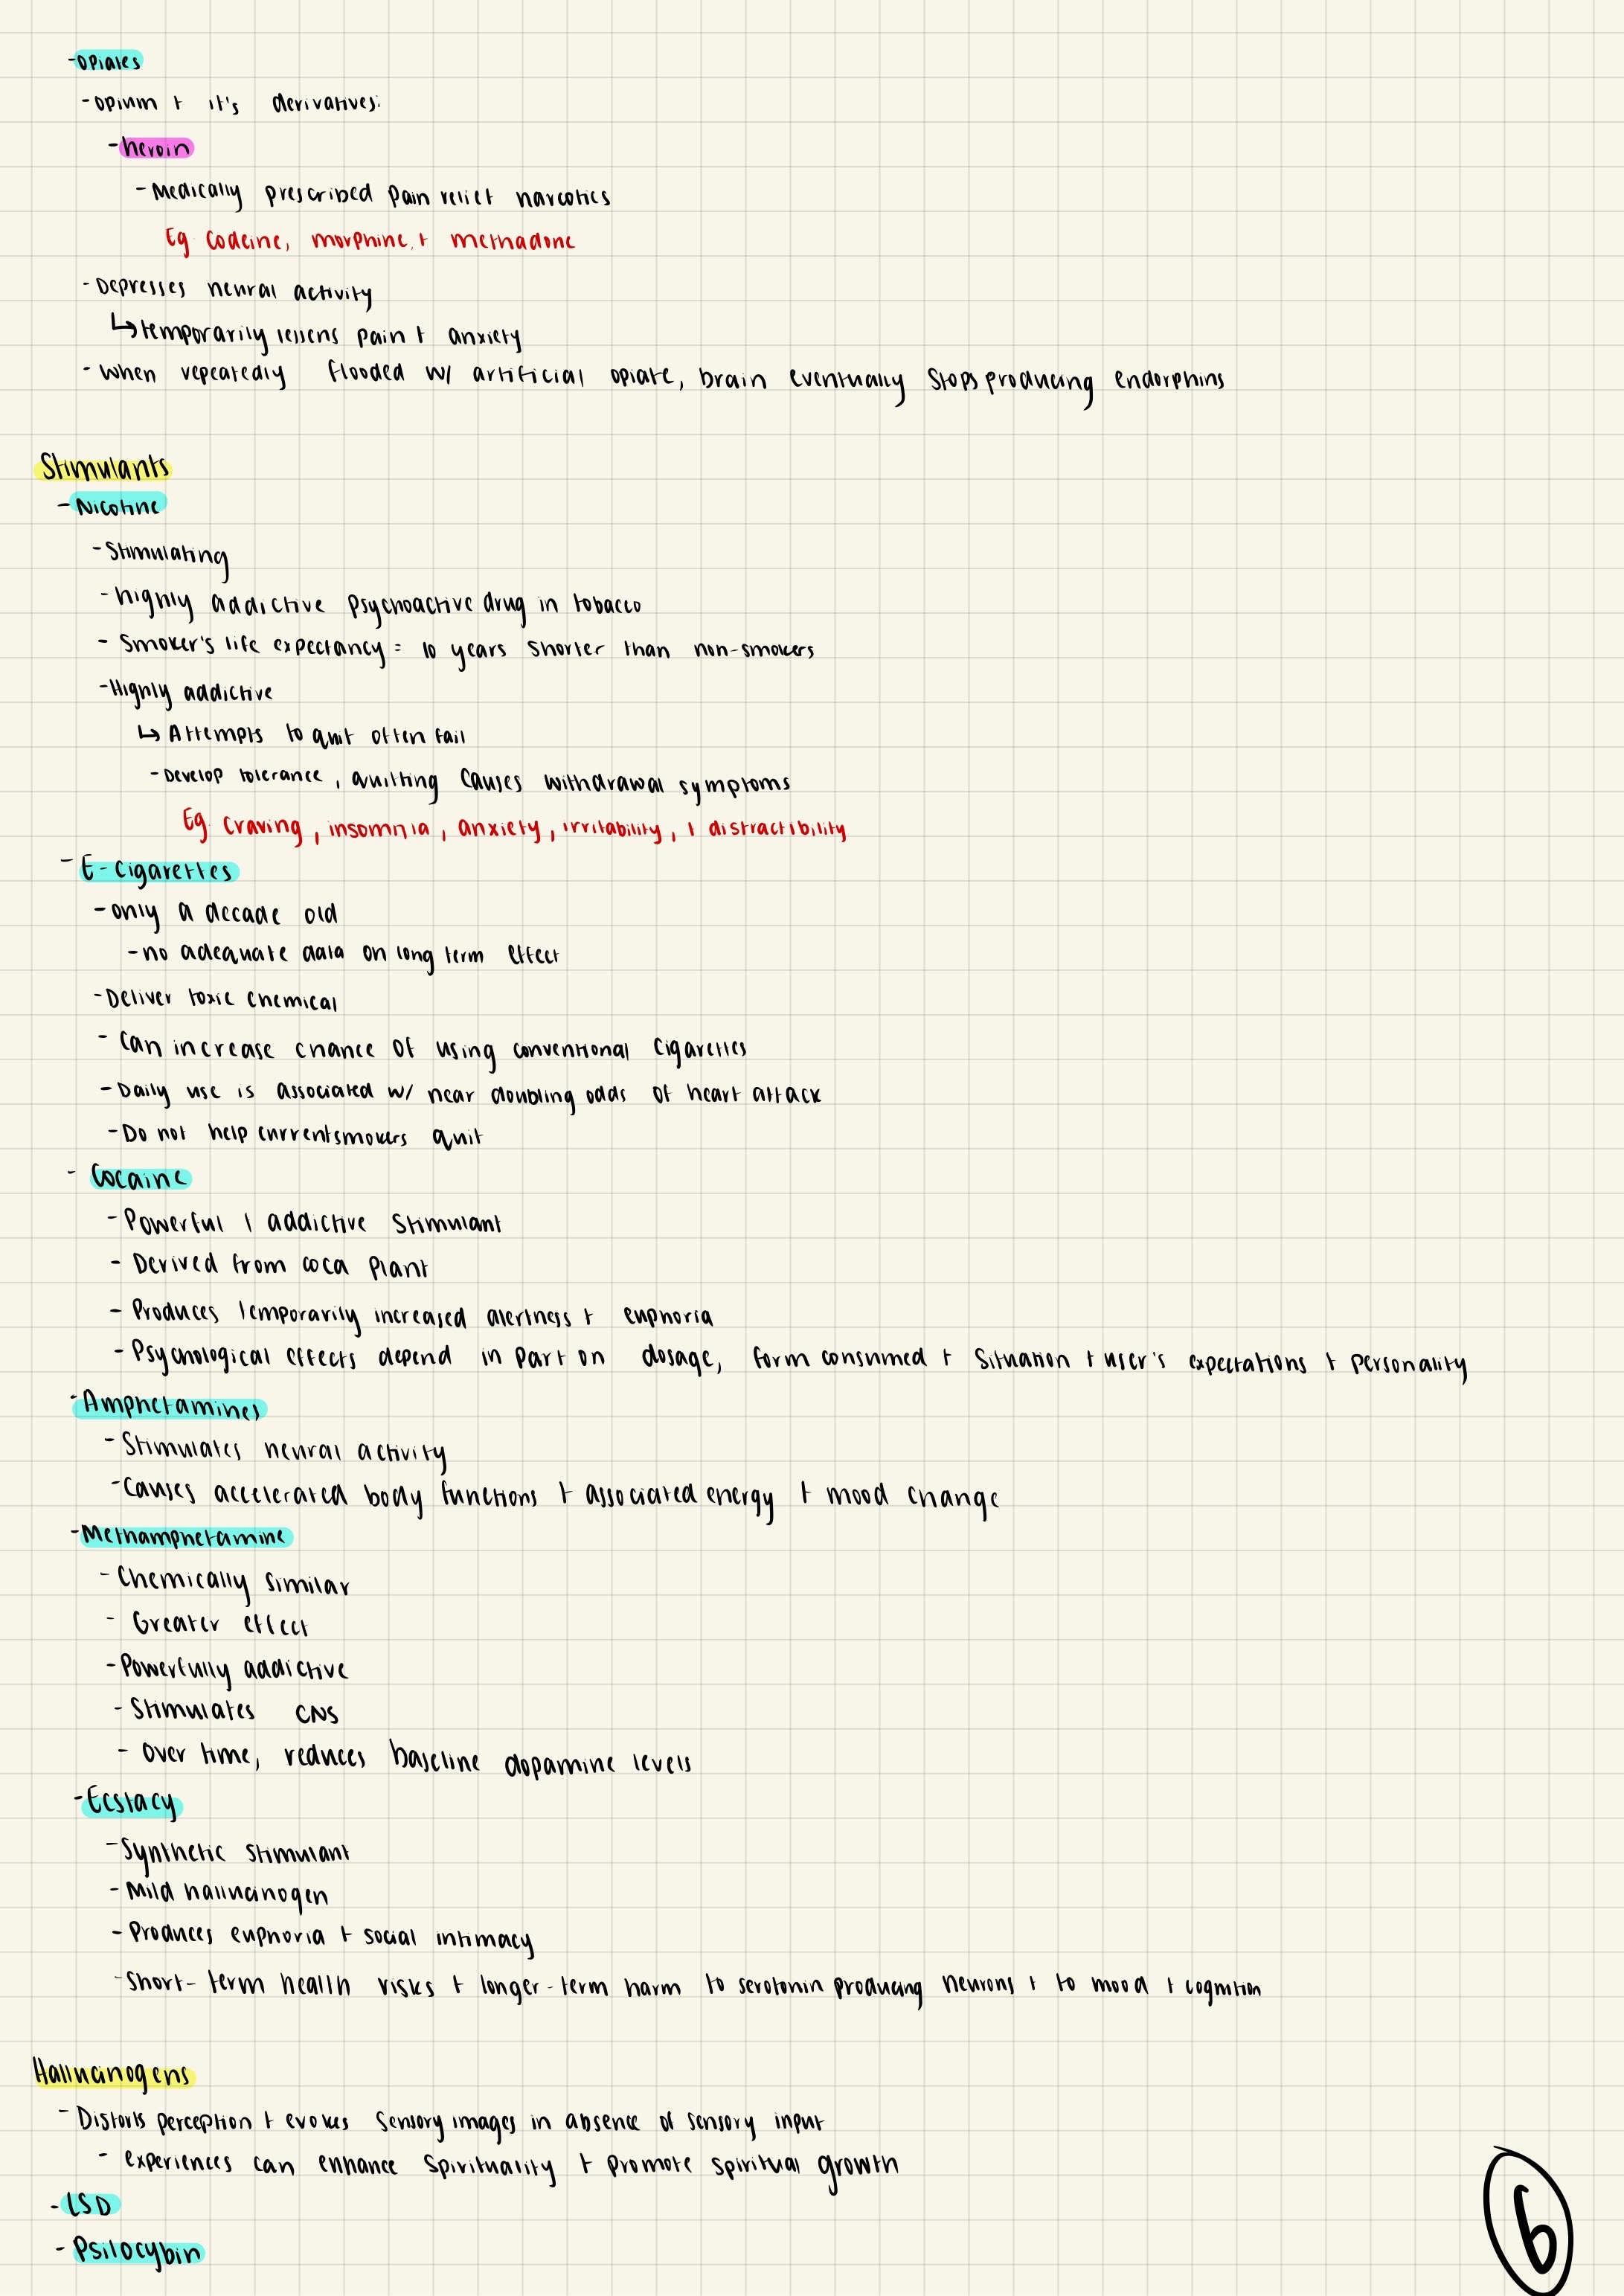 -Opiates
-opium + it's derivatives:
-heroin
-Medically prescribed pain relief narcotics
Eg codeine, morphine, + methadone
-Depresses neural activity
↳temporarily lessens pain + anxiety
-When repeatedly flooded w/ artificial opiate, brain eventually stops producing endorphins
Stimulants
-Nicotine
-Stimulating
-highly addictive psychoactive drug in tobacco
- Smoker's life expectancy = 10 years shorter than non-smokers
-Highly addictive
↳ Attempts to quit often fail
-Develop tolerance, quitting causes withdrawal symptoms
Eg craving, insomnia, anxiety, irritability, + distractibility
- E-cigarettes
-only a decade old
-no adequate data on long term effect
-Deliver toxic chemical
- Can increase chance of using conventional cigarettes
-Daily use is associated w/ near doubling odds of heart attack
-Do not help current smokers quit
- Cocaine
-Powerful + addictive stimulant
- Derived from coca plant
- Produces temporarily increased alertness + euphoria
-Psychological effects depend in part on dosage, form consumed + situation + user's expectations + personality
-Amphetamines
-Stimulates neural activity
-Causes accelerated body functions + associated energy + mood change
-Methamphetamine
-Chemically similar
- Greater effect
-Powerfully addictive
-Stimulates CNS
- Over time, reduces baseline dopamine levels
-Ecstacy
-Synthetic stimulant
-Mild hallucinogen
-Produces euphoria + social intimacy
-Short-term health risks + longer-term harm to serotonin producing neurons + to mood + cognition
Hallucinogens
-Distorts perception + evokes sensory images in absence of sensory input
- experiences can enhance spirituality + promote spiritual growth
-LSD
-Psilocybin
6